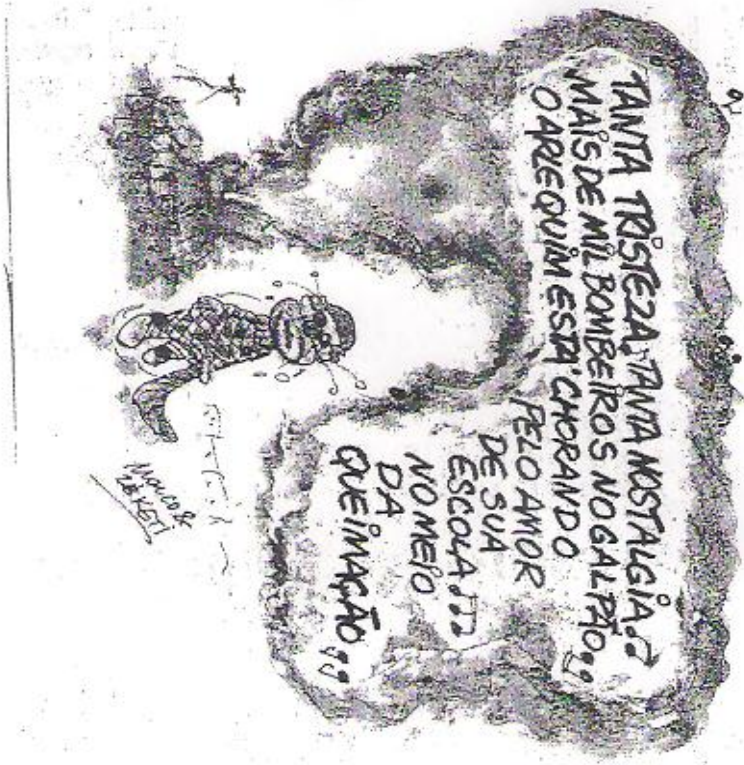 TANTA TRISTEZA, TANTA NOSTALGIA..
MAIS DE MIL BOMBEIROS NO GALPÃO..
O ARLEQUIM ESTÁ CHORANDO
PELO AMOR
DE SUA
ESCOLA...
NO MEIO
DA
QUEIMAÇÃO..
& ZÉ KETI